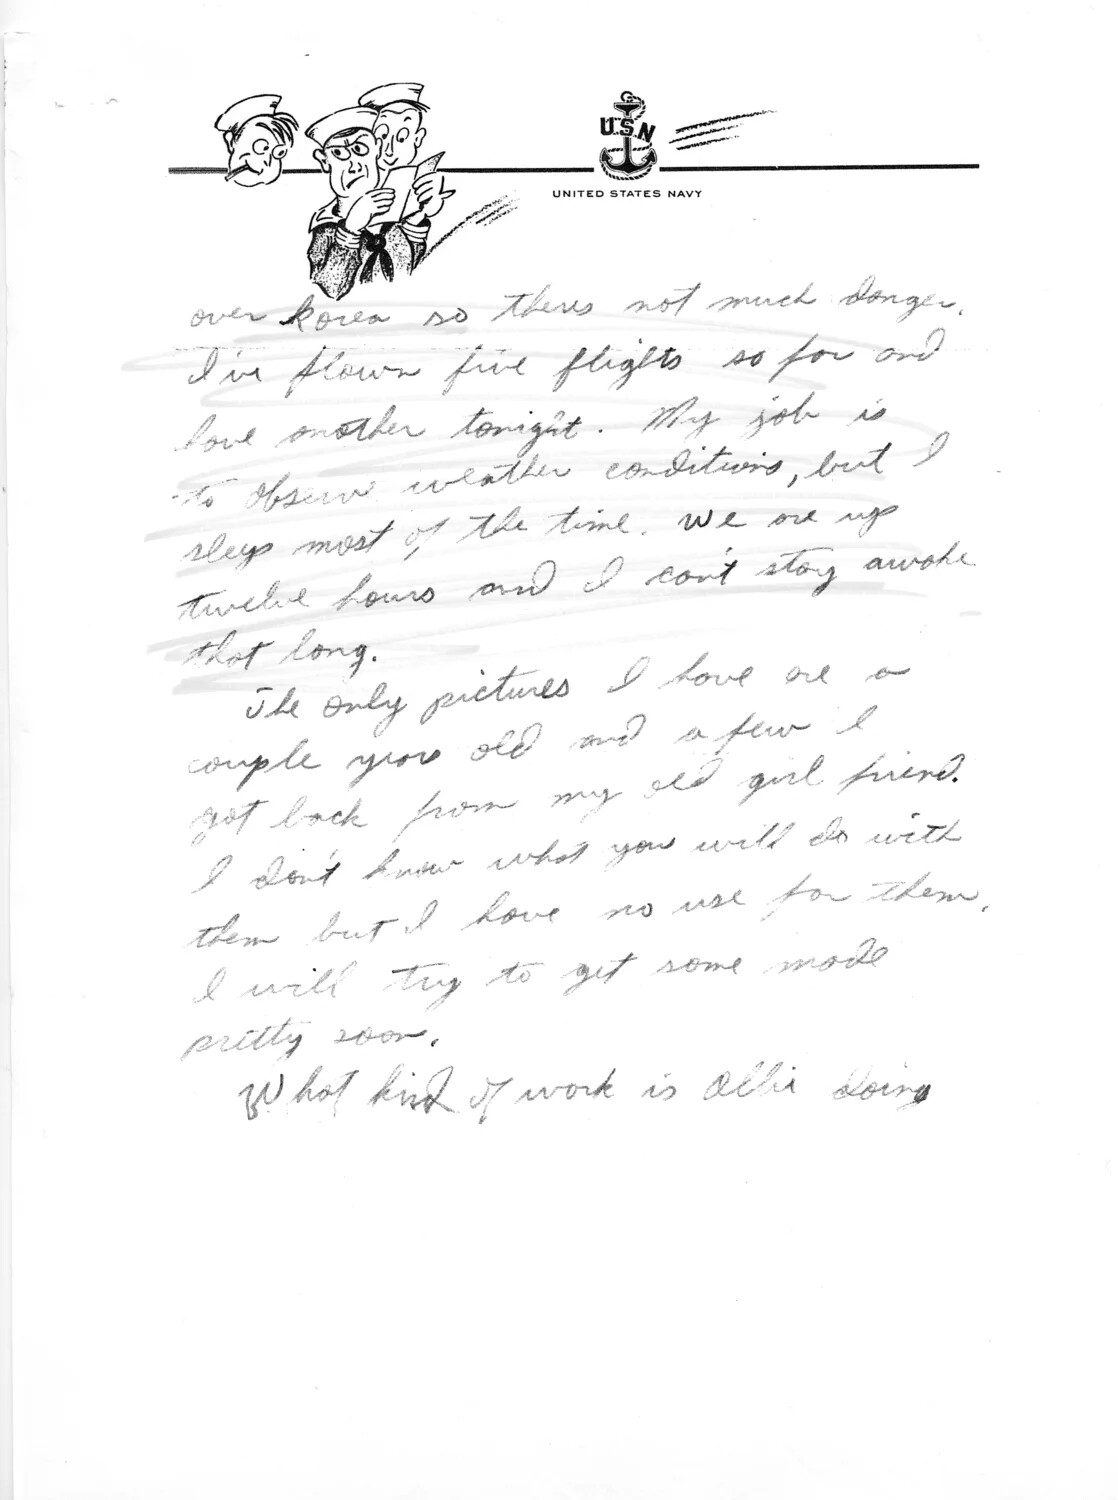 U.S.N
UNITED STATES NAVY
over Korea so theres not much danger.
I've flown five flights so far and
have another tonight. My job is
to observe weather conditions, but I
sleep most of the time. We are up
twelve hours and I can't stay awake
that long.
The only pictures I have are a
couple years old and a few I
got back from my old girl friend.
I don't know what you will do with
them but I have no use for them.
I will try to get some made
pretty soon.
What kind of work is Ollie doing